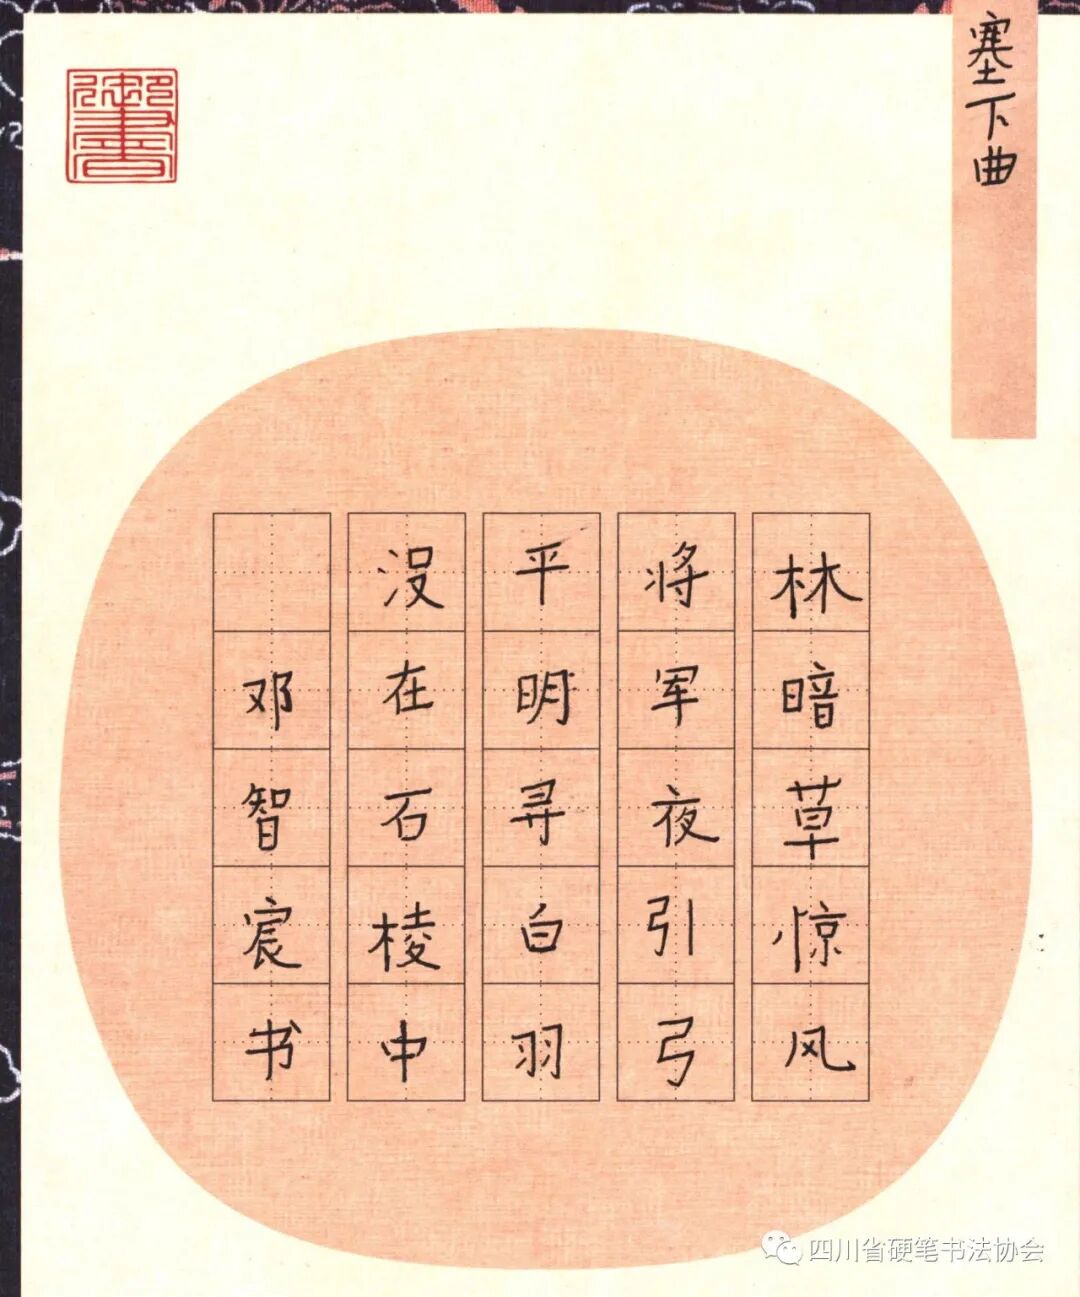 塞下曲
林暗草惊风
将军夜引弓
平明寻白羽
没在石棱中
邓智宸书
四川省硬笔书法协会